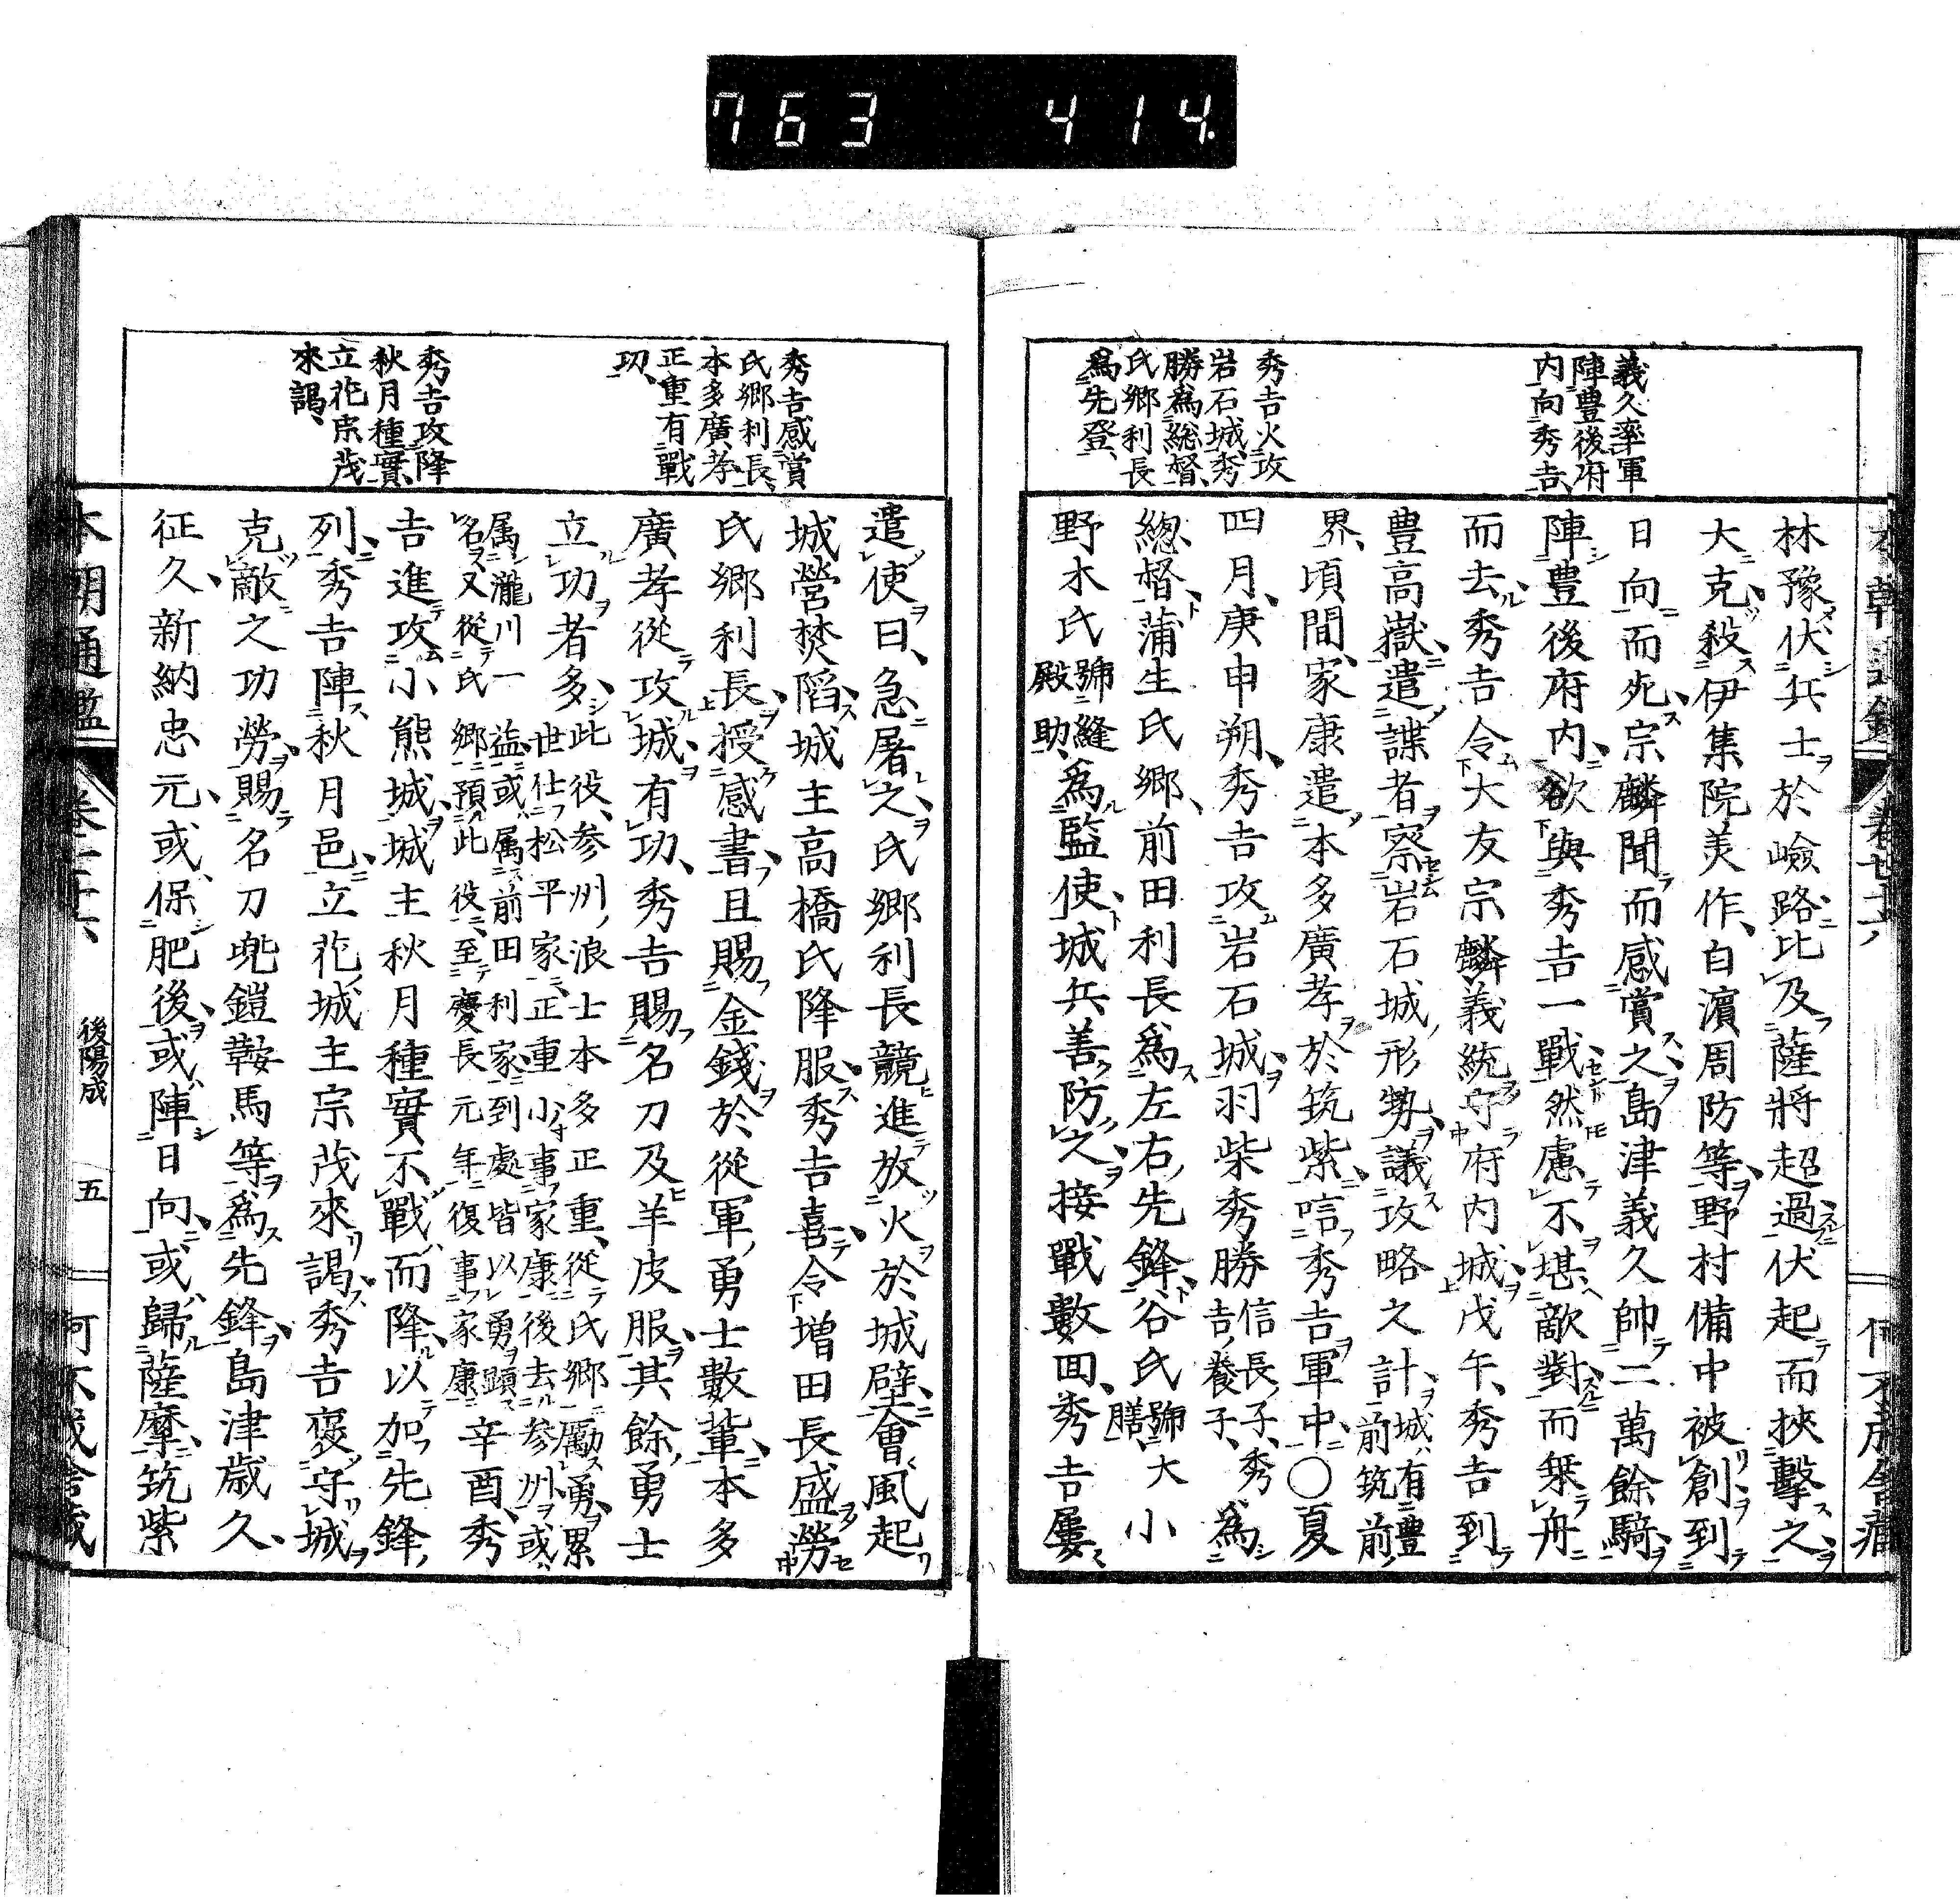 763 414.
義久率軍
陣豊後府
内向秀吉、
秀吉火攻
岩石城、秀
勝為総督、
氏郷利長
為先登、
林豫伏兵士於嶮路比及薩將超過伏起而挾擊之
大克、殺伊集院美作、白濱周防等、野村備中被創到
日向而死、宗麟聞而感賞之、島津義久帥二萬餘騎
陣豊後府内、欲與秀吉一戰、然慮不堪敵對而棄舟
而去、秀吉令大友宗麟義統守府内城、戊午、秀吉到
豊高嶽、遣諜者察岩石城形勢、議攻略之計、城有豊
前筑前
界、頃間、家康遣本多廣孝於筑紫、唁秀吉軍中、○夏
四月、庚申朔、秀吉攻岩石城、羽柴秀勝信長子、秀
吉養子、為
總督、蒲生氏郷、前田利長為左右先鋒、谷氏號大
膳、小
野木氏號縫
殿助、為監使、城兵善防之、接戰數回、秀吉屢
遣使曰、急屠之、氏郷利長競進放火於城壁、會風起
城營焚䧟、城主高橋氏降服、秀吉喜、令増田長盛勞
氏郷利長、授感書、且賜金錢於從軍勇士數輩、本多
廣孝從攻城、有功、秀吉賜名刀及羊皮服、其餘勇士
立功者多、此役、参州浪士本多正重、從氏郷勵勇、累
世仕松平家、正重小事家康、後去参州、或
属瀧川一益、或属前田利家、到處皆以勇顕
名、又從氏郷預此役、至慶長元年復事家康、辛酉、秀
吉進攻小熊城、城主秋月種實不戰而降、以加先鋒
列、秀吉陣秋月邑、立花城主宗茂來謁、秀吉褒守城
克敵之功勞、賜名刀兜鎧鞍馬等、為先鋒、島津歳久、
征久、新納忠元、或保肥後、或陣日向、或歸薩摩、筑紫
秀吉感賞
氏郷利長、
本多廣孝
正重有戰
功、
秀吉攻降
秋月種實、
立花宗茂
來謁、
本朝通鑑 後陽成 五